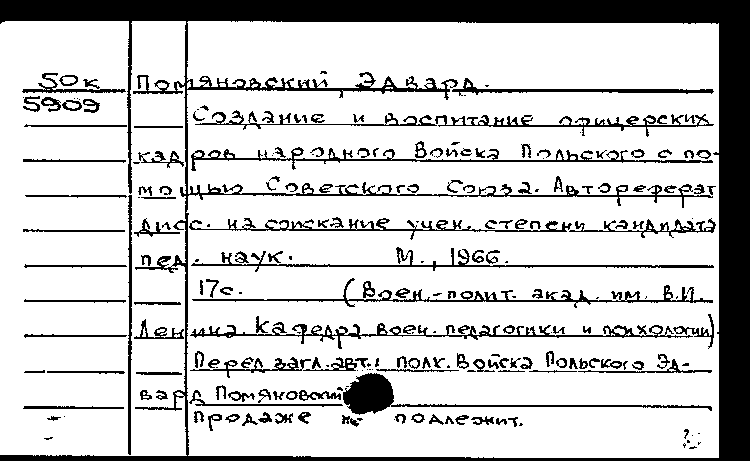 50к Помяновский, Эдвард.
5909
Создание и воспитание офицерских
кадров народного Войска Польского с по-
мощью Советского Союза. Автореферат
дисс. на соискание учен. степени кандидата
пед. наук. М., 1966.
17с. (Воен.-полит. акад. им. В.И.
Ленина. Кафедра воен. педагогики и психологии).
Перед загл. авт.: полк. Войска Польского Эд-
вард Помяновский
продаже не подлежит.